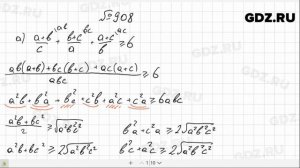 GDZ.RU
№908
а) (a+b)/c + (b+c)/a + (a+b)/b ≥ 6
ab bc ac
(ab(a+b)+bc(b+c)+ac(a+c))/abc ≥ 6
a²b+b²a + b²c+c²b+a²c+c²a ≥ 6abc
(a²b+bc²)/2 ≥ √(a²b²c²)
b²a+c²a ≥ 2√(a²b²c²)
a²b+bc² ≥ 2√(a²b²c²)
b²c+a²c ≥ 2√(a²b²c²)
GDZ.RU